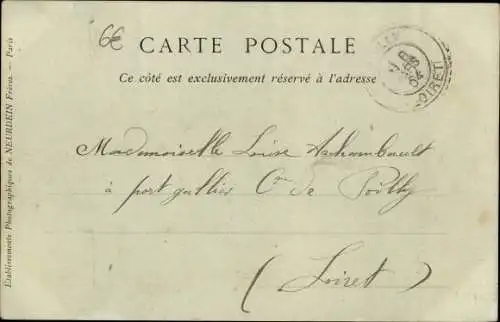 6€
CARTE POSTALE
Ce côté est exclusivement réservé à l'adresse
LOIRET
Mademoiselle Loise Archambault
à port gallier Cne de Poilly
(Loiret)
Etablissements Photographiques de NEURDEIN Frères. — Paris